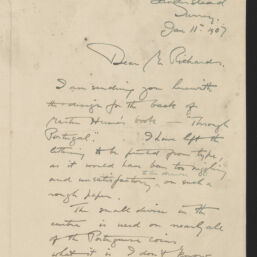 Surrey.
Jan 11th 1907
Dear Mr Richards,
I am sending you herewith
a design for the back of
Martin Hume's book — "Through
Portugal". I have left the
lettering to be printed from type,
as it would have been too niggling
and unsatisfactory on such a
rough paper.
The small device in the
centre is used on nearly all
of the Portuguese coins
what it is I don't know